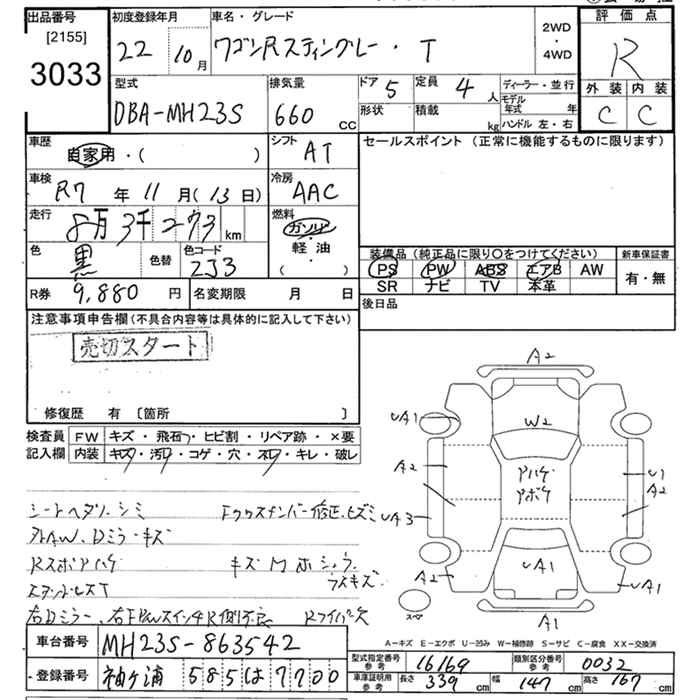 出品番号 [2155] 3033
初度登録年月 22 10月
車名・グレード ワゴンRスティングレー・T
2WD・4WD
評価点 R
外装 内装
C C
型式 DBA-MH23S
排気量 660 CC
ドア 5 定員 4人
形状 積載 kg
ディーラー・並行
モデル年式 年
ハンドル 左・右
車歴 自家用・( )
シフト AT
セールスポイント (正常に機能するものに限ります)
車検 R7年 11月(13日)
冷房 AAC
走行 8万3千273 km
燃料 ガソリン・軽油 ( )
色 黒 色替 色コード ZJ3
装備品 (純正品に限り○をつけてください)
新車保証書 有・無
PS PW ABS エアB AW
SR ナビ TV 本革
R券 9,880円 名変期限 月 日
後日品
注意事項申告欄(不具合内容等は具体的に記入して下さい)
売切スタート
修復歴 有 [箇所 ]
検査員記入欄 FW キズ・飛石・ヒビ割・リペア跡・×要
内装 キズ・汚レ・コゲ・穴・スレ・キレ・破レ
シートヘタリ、シミ
外AW、Dミラーキズ
Rスポアハゲ
右Dミラー、
Rワイパー欠
A2
W2
A1
A2
アハゲ
アボケ
U1
A2
A3
A2
A1
A1
A1
スペア
A-キズ E-エクボ U-凹み W-補修跡 S-サビ C-腐食 XX-交換済
車台番号 MH23S-863542
登録番号 袖ヶ浦 585は7700
型式指定番号 参考 16169 類別区分番号 参考 0032
車庫証明用 参考 長さ 339 cm 幅 147 cm 高さ 167 cm